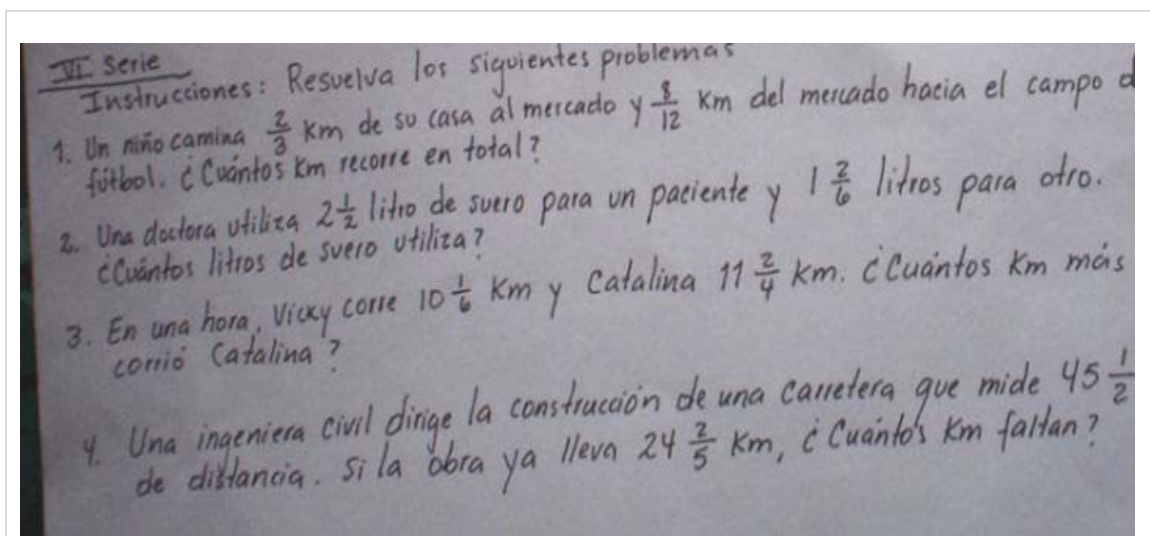 VI Serie
Instrucciones: Resuelva los siguientes problemas
1. Un niño camina 2/3 Km de su casa al mercado y 8/12 Km del mercado hacia el campo d
fútbol. ¿Cuántos Km recorre en total?
2. Una doctora utiliza 2 1/2 litro de suero para un paciente y 1 2/6 litros para otro.
¿Cuántos litros de suero utiliza?
3. En una hora, Vicky corre 10 1/6 Km y Catalina 11 2/4 km. ¿Cuántos Km más
corrió Catalina?
4. Una ingeniera civil dirige la construcción de una carretera que mide 45 1/2
de distancia. Si la obra ya lleva 24 2/5 Km, ¿Cuántos Km faltan?